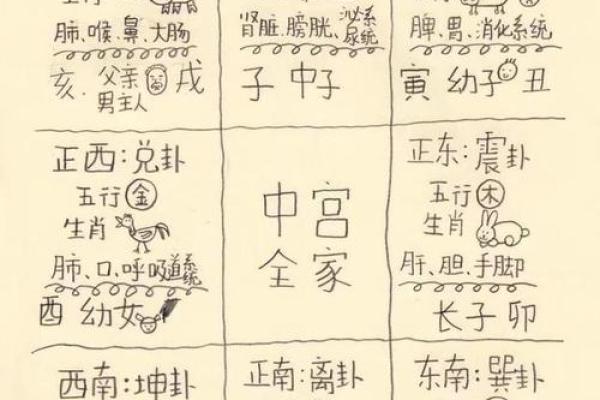 肺、喉、鼻、大肠
亥、父亲 男主人 戌
肾脏、膀胱、泌尿系统
子 中子
脾、胃、消化系统
寅 幼子 丑
正西:兑卦
五行 金
生肖
肺、口、呼吸道系统
酉 幼女
中宫
全家
正东:震卦
五行 木
生肖
肝、胆、手脚
长子 卯
西南:坤卦
正南:离卦
东南:巽卦